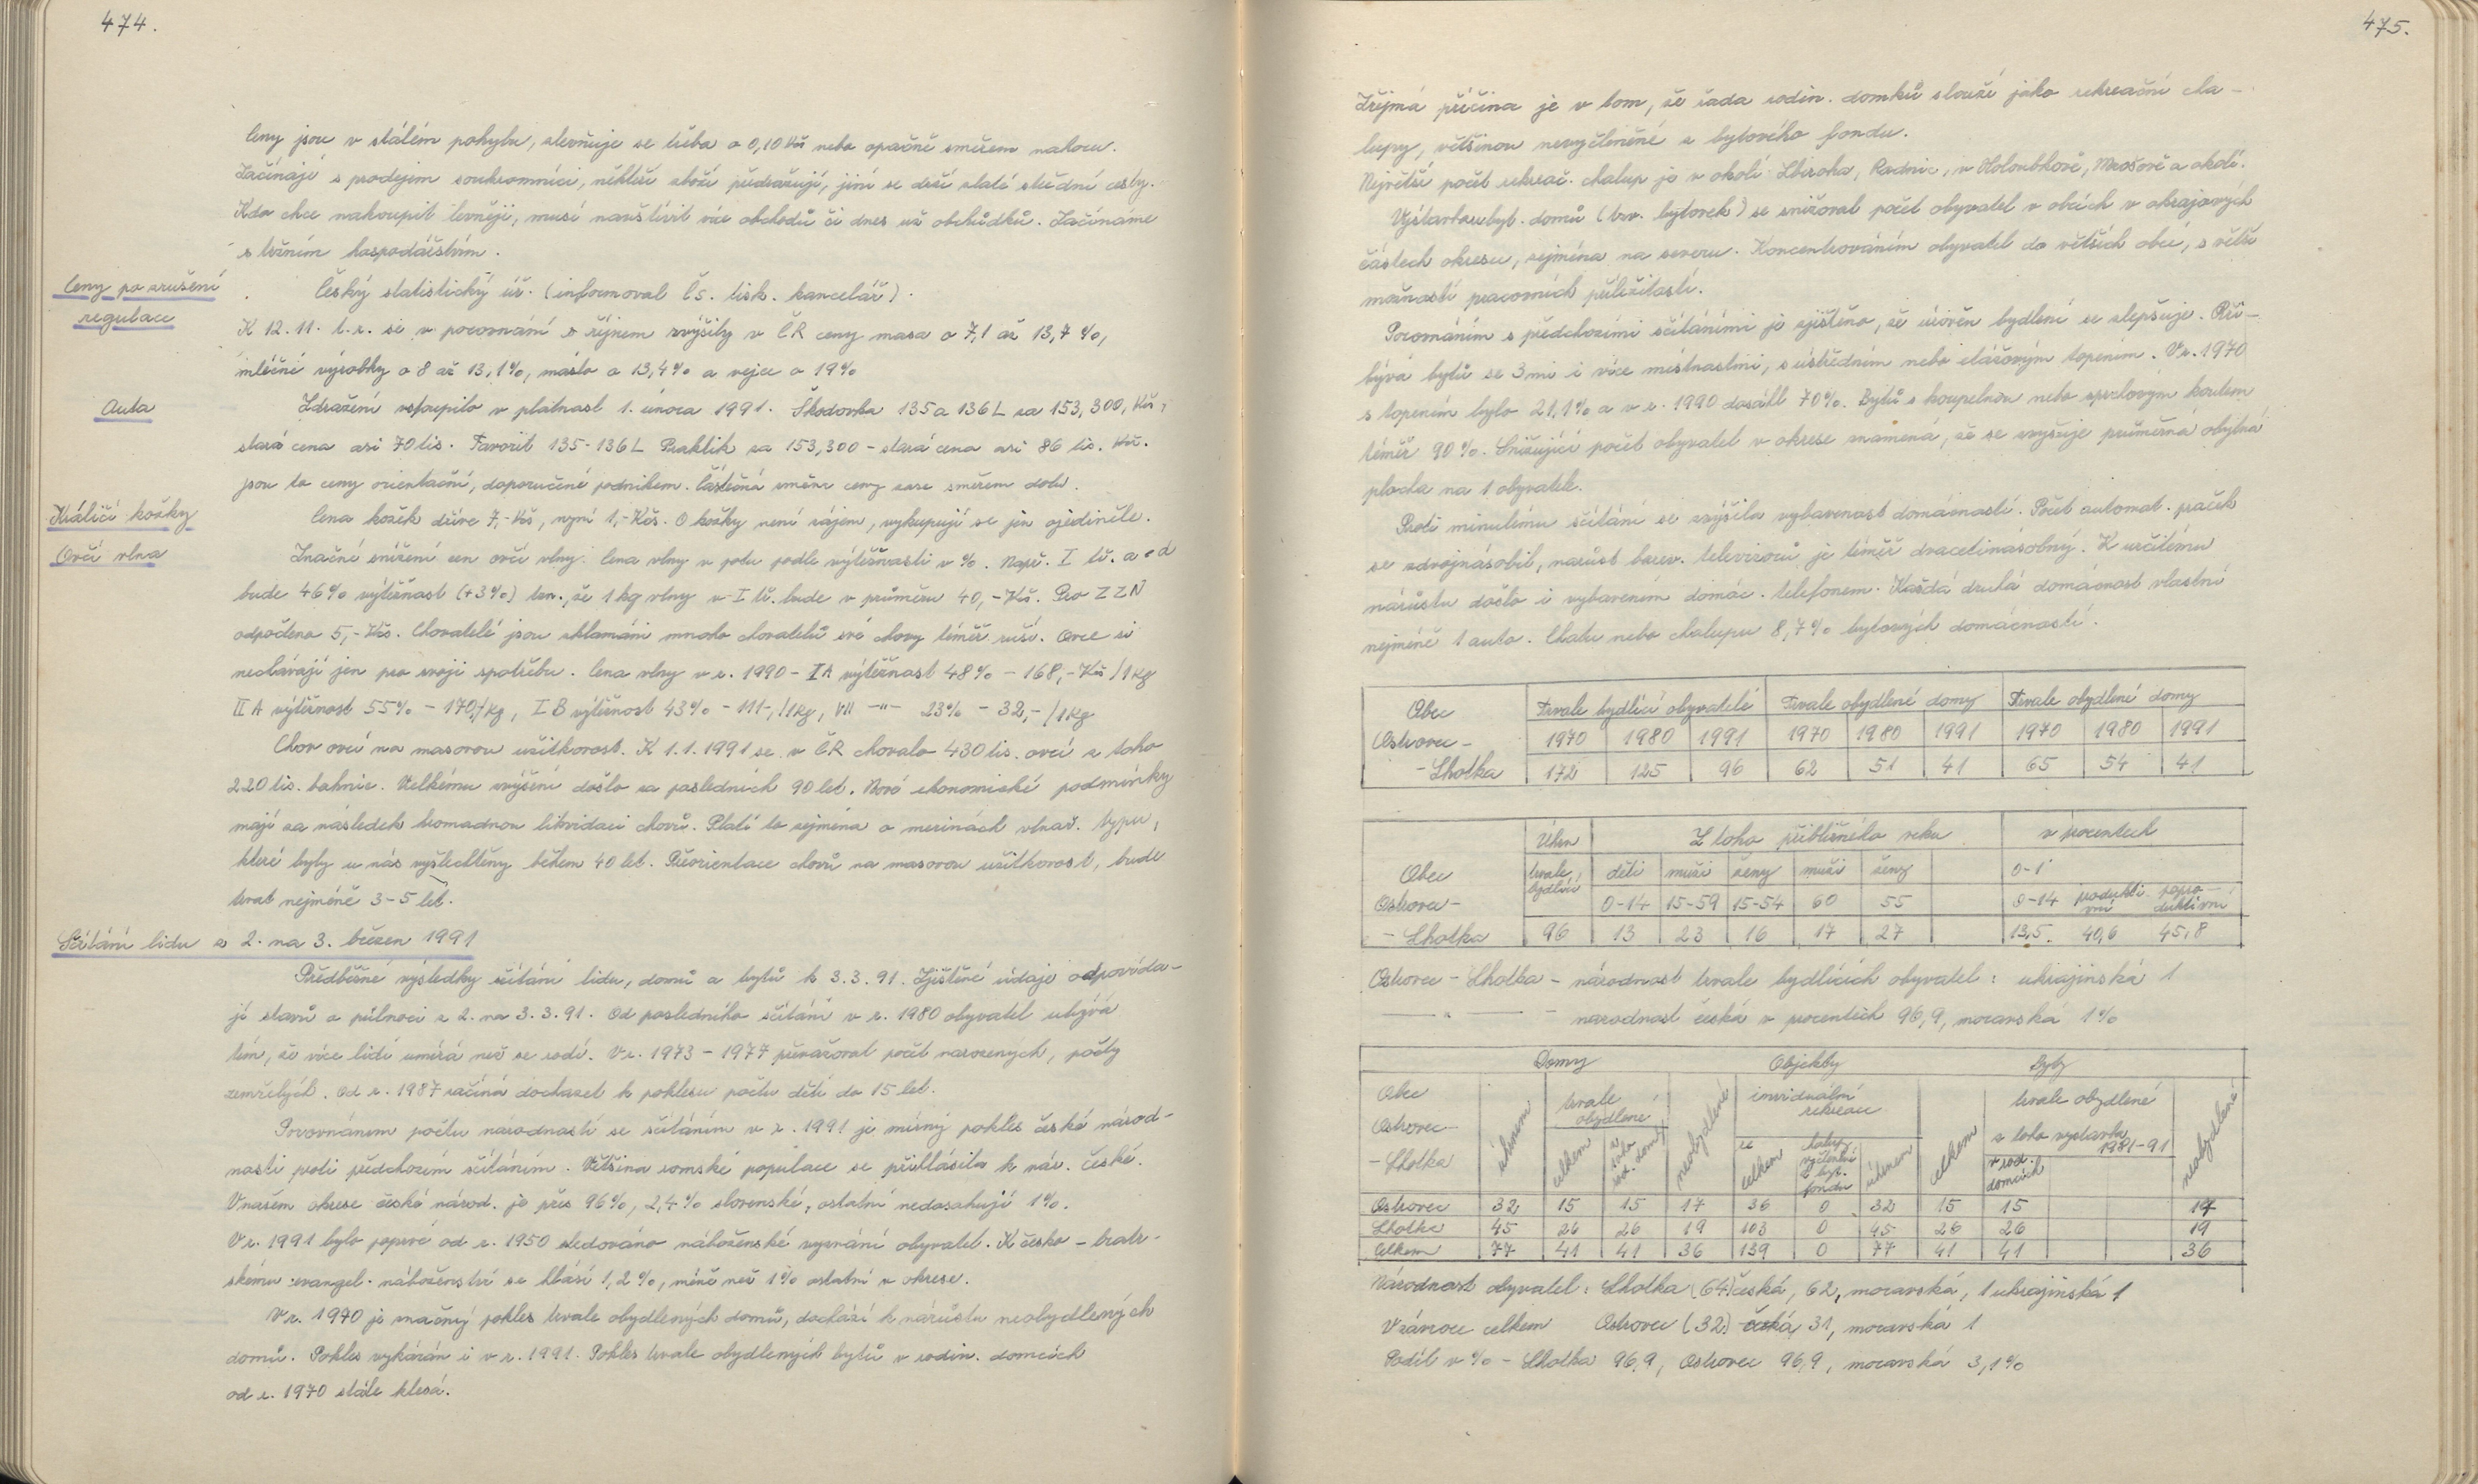 474.
Ceny jsou v stálém pohybu, zlevňuje se třeba o 0,10 Kčs nebo opačně směrem nahoru.
Začínají s prodejem soukromníci, někteří zboží předražují, jiní se drží zlaté střední cesty.
Kdo chce nakoupit levněji, musí navštívit více obchodů či dnes už obchůdků. Začínáme
s tržním hospodářstvím.
Ceny po zrušení
regulace
Český statistický úř. (informoval čs. tisk. kancelář).
K 12.11. t.r. se v porovnání s říjnem zvýšily v ČR ceny masa o 7,1 až 13,7 %,
mléčné výrobky o 8 až 13,1%, máslo o 13,4% a vejce o 19%
Auta
Zdražení vstoupilo v platnost 1. února 1991. Škodovka 135 a 136 L za 153,300, Kčs,
stará cena asi 70 tis. Favorit 135-136 L Praktik za 153,300 - stará cena asi 86 tis. Kčs.
jsou to ceny orientační, doporučené podnikem. Částečná změna ceny zase směrem dolů.
Králičí kožky
Cena kožek dříve 7,- Kčs, nyní 1,- Kčs. O kožky není zájem, vykupují se jen ojediněle.
Ovčí vlna
Značné snížení cen ovčí vlny. Cena vlny v potu podle výtěžnosti v %. Např. I tř. a ed
bude 46% výtěžnost (+3%) tzn., že 1 kg vlny v I tř. bude v průměru 40,- Kčs. Pro ZZN
odpočteno 5,- Kčs. Chovatelé jsou zklamáni mnoho chovatelů své chovy téměř ruší. Ovce si
nechávají jen pro svoji spotřebu. Cena vlny v r. 1990 - IA výtěžnost 48% - 168,- Kčs /1 kg
II A výtěžnost 55% - 170,/kg, I B výtěžnost 43% - 111-,/1kg, VII -"- 23% - 32,- /1kg
Chov ovcí na masovou užitkovost. K 1.1.1991 se v ČR chovalo 430 tis. ovcí z toho
220 tis. bahnic. Velkému zvýšení došlo za posledních 90 let. Nové ekonomické podmínky
mají za následek hromadnou likvidaci chovů. Platí to zejména o merinách vlnař. typu,
které byly u nás vyšlechtěny během 40 let. Přeorientace chovů na masovou užitkovost, bude
trvat nejméně 3-5 let.
Sčítání lidu z 2. na 3. březen 1991
Předběžné výsledky sčítání lidu, domů a bytů k 3.3.91. Zjištěné údaje odpovída-
jí stavu o půlnoci z 2. na 3.3.91. Od posledního sčítání v r. 1980 obyvatel ubývá
tím, že více lidí umírá než se rodí. V r. 1973 - 1977 převažoval počet narozených, počty
zemřelých. Od r. 1987 začíná docházet k poklesu počtu dětí do 15 let.
Porovnáním počtu národností se sčítáním v r. 1991 je mírný pokles české národ-
nosti proti předchozím sčítáním. Většina romské populace se přihlásila k nár. české.
V našem okrese české národ. je přes 96%, 2,4% slovenské, ostatní nedosahují 1%.
V r. 1991 bylo poprvé od r. 1950 sledováno náboženské vyznání obyvatel. K česko - bratr-
skému evangel. náboženství se hlásí 1,2%, méně než 1% ostatní v okrese.
V r. 1970 je značný pokles trvale obydlených domů, dochází k nárůstu neobydlených
domů. Pokles vykázán i v r. 1991. Pokles trvale obydlených bytů v rodin. domcích
od r. 1970 stále klesá.
475.
Zřejmá příčina je v tom, že řada rodin. domků slouží jako rekreační cha-
lupy, většinou nevyčleněné z bytového fondu.
Největší počet rekreač. chalup je v okolí Zbiroha, Radnic, v Holoubkově, Mirošově a okolí.
Výstavbou byt. domů (tzv. bytovek) se snižoval počet obyvatel v obcích v okrajových
částech okresu, zejména na severu. Koncentrováním obyvatel do větších obcí, s větší
možností pracovních příležitostí.
Porovnáním s předchozími sčítáními je zjištěno, že úroveň bydlení se zlepšuje. Při-
bývá bytů se 3mi i více místnostmi, s ústředním nebo etážovým topením. V r. 1970
s topením bylo 21,1% a v r. 1990 dosáhl 70%. Bytů s koupelnou nebo sprchovým koutem
téměř 90%. Snižující počet obyvatel v okrese znamená, že se zvyšuje průměrná obytná
plocha na 1 obyvatele.
Proti minulému sčítání se zvýšila vybavenost domácností. Počet automat. praček
se zdvojnásobil, nárůst barev. televizorů je téměř dvacetinásobný. K určitému
nárůstu došlo i vybavením domác. telefonem. Každá druhá domácnost vlastní
nejméně 1 auto. Chatu nebo chalupu 8,7% bytových domácností.
Obec Trvale bydlící obyvatelé Trvale obydlené domy Trvale obydlené domy
Ostrovec - 1970 1980 1991 1970 1980 1991 1970 1980 1991
- Lhotka 172 125 96 62 51 41 65 54 41
Úhrn Z toho přibližného věku v procentech
Obec trvale bydlící děti muži ženy muži ženy 0-1
Ostrovec - 0-14 15-59 15-54 60 55 0-14 produkti- vní popro- duktivní
- Lhotka 96 13 23 16 17 27 13,5. 40,6 45,8
Ostrovec - Lhotka - národnost trvale bydlících obyvatel: ukrajinská 1
— " — - národnost česká v procentech 96,9, moravská 1%
Domy Objekty Byty
Obec trvale obydlené individuální rekreace trvale obydlené
Ostrovec - úhrnem neobydlené celkem neobydlené
- Lhotka celkem z toho rod. domy celkem chalup vyčleněné z byt. fondu úhrnem z toho výstavba 1981-91
v rod. domcích
Ostrovec 32 15 15 17 36 0 32 15 15 17
Lhotka 45 26 26 19 103 0 45 26 26 19
Celkem 77 41 41 36 139 0 77 41 41 36
Národnost obyvatel: Lhotka (64) česká, 62, moravská, 1 ukrajinská 1
V závorce celkem Ostrovec (32) česká, 31, moravská 1
Podíl v % - Lhotka 96,9, Ostrovec 96,9, moravská 3,1%